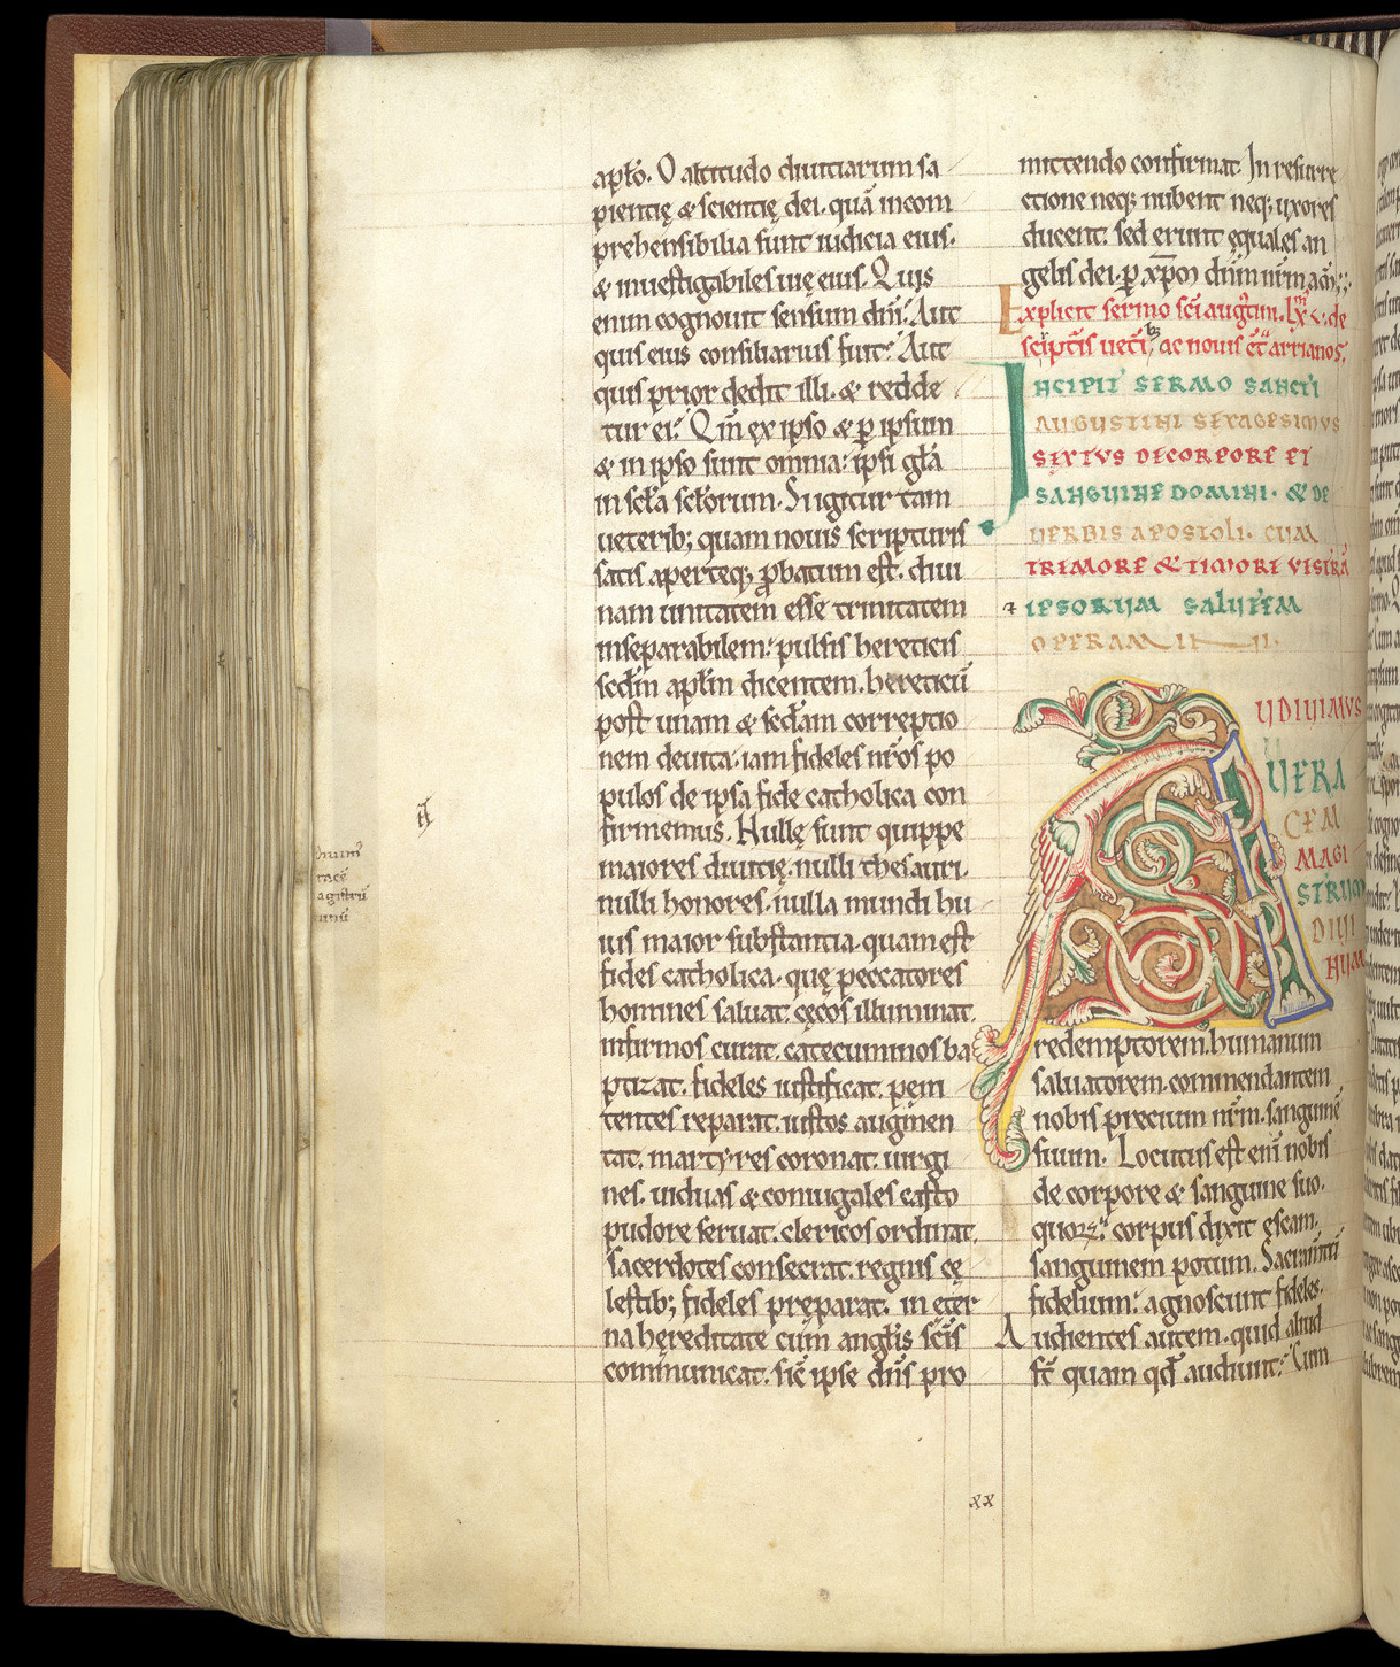 apłó. O altitudo diuitiarum sa
pientię & scientię dei. quā incom
prehensibilia sunt iudicia eius.
& inuestigabiles uię eius. Quis
enim cognouit sensum dñi? Aut
quis eius consiliarius fuit? Aut
quis prior dedit illi. & redde
tur ei? Qm̄ ex ipso & ꝑ ipsum
& in ipso sunt omnia: ipsi głā
in scła scłorum. Si igitur tam
ueterib; quam nouis scripturis
satis aperteq; ꝓbatum est. diui
nam unitatem esse trinitatem
inseparabilem: pulsis hereticis
scdm̄ apłm dicentem. hereticū
post unam & scdam correptio
nem deuita: iam fideles nr̄os po
pulos de ipsa fide catholica con
firmemus. Nullę sunt quippe
maiores diuitię. nulli thesauri.
nulli honores. nulla mundi hu
ius maior substantia. quam est
fides catholica. quę peccatores
homines saluat. cęcos illuminat.
infirmos curat. catecuminos ba
ptizat. fideles iustificat. pęni
tentes reparat. iustos augmen
tat. martyres coronat. uirgi
nes. uiduas & coniugales casto
pudore seruat. clericos ordinat.
sacerdotes consecrat. regnis cę
lestib; fideles pręparat. in eter
na hęreditate cum anglis scīs
communicat. sic ipse dñs pro
mittendo confirmat. In resurre
ctione neq; nubent neq; uxores
ducent: sed erunt ęquales an
gelis dei. ꝑ xp̄m dñm nr̄m
Explicit sermo scī augtini. de
ac nouis arrianos.
INCIPIT SERMO SANCTI
AUGUSTINI SEXAGESIMUS
SEXTVS DE CORPORE ET
SANGUINE DOMINI. & DE
UERBIS APOSTOLI. CUM
TREMORE & TIMORE VESTRĀ
IPSORUM SALUTEM
OPERAMINI.
AUDIUIMVS
UERA
CEM
MAGI
STRUM
DIUI
NUM
redemptorem. humanum
saluatorem. commendantem
nobis precium nr̄m. sanguinē
suum. Locutus est enī nobis
de corpore & sanguine suo.
quoꝝ corpus dixit escam.
sanguinem potum. Sacramtū
fidelium: agnoscunt fideles.
Audientes autem. quid aliud
st̄ quam qđ audiunt? Cum
xx